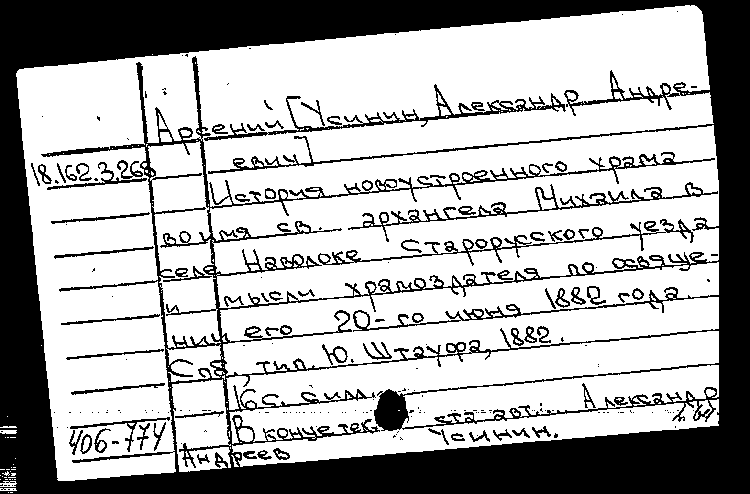 Арсений [Усинин, Александр Андре-
евич]
18.162.3.268
История новоустроенного храма
во имя св. архангела Михаила в
селе Наволоке Старорусского уезда
и мысли храмоздателя по освяще-
нии его 20-го июня 1882 года.
Спб., тип. Ю. Штауфа, 1882.
16 с. силл.
В конце тек ста авт.: Александр
406-774 Андреев Усинин.